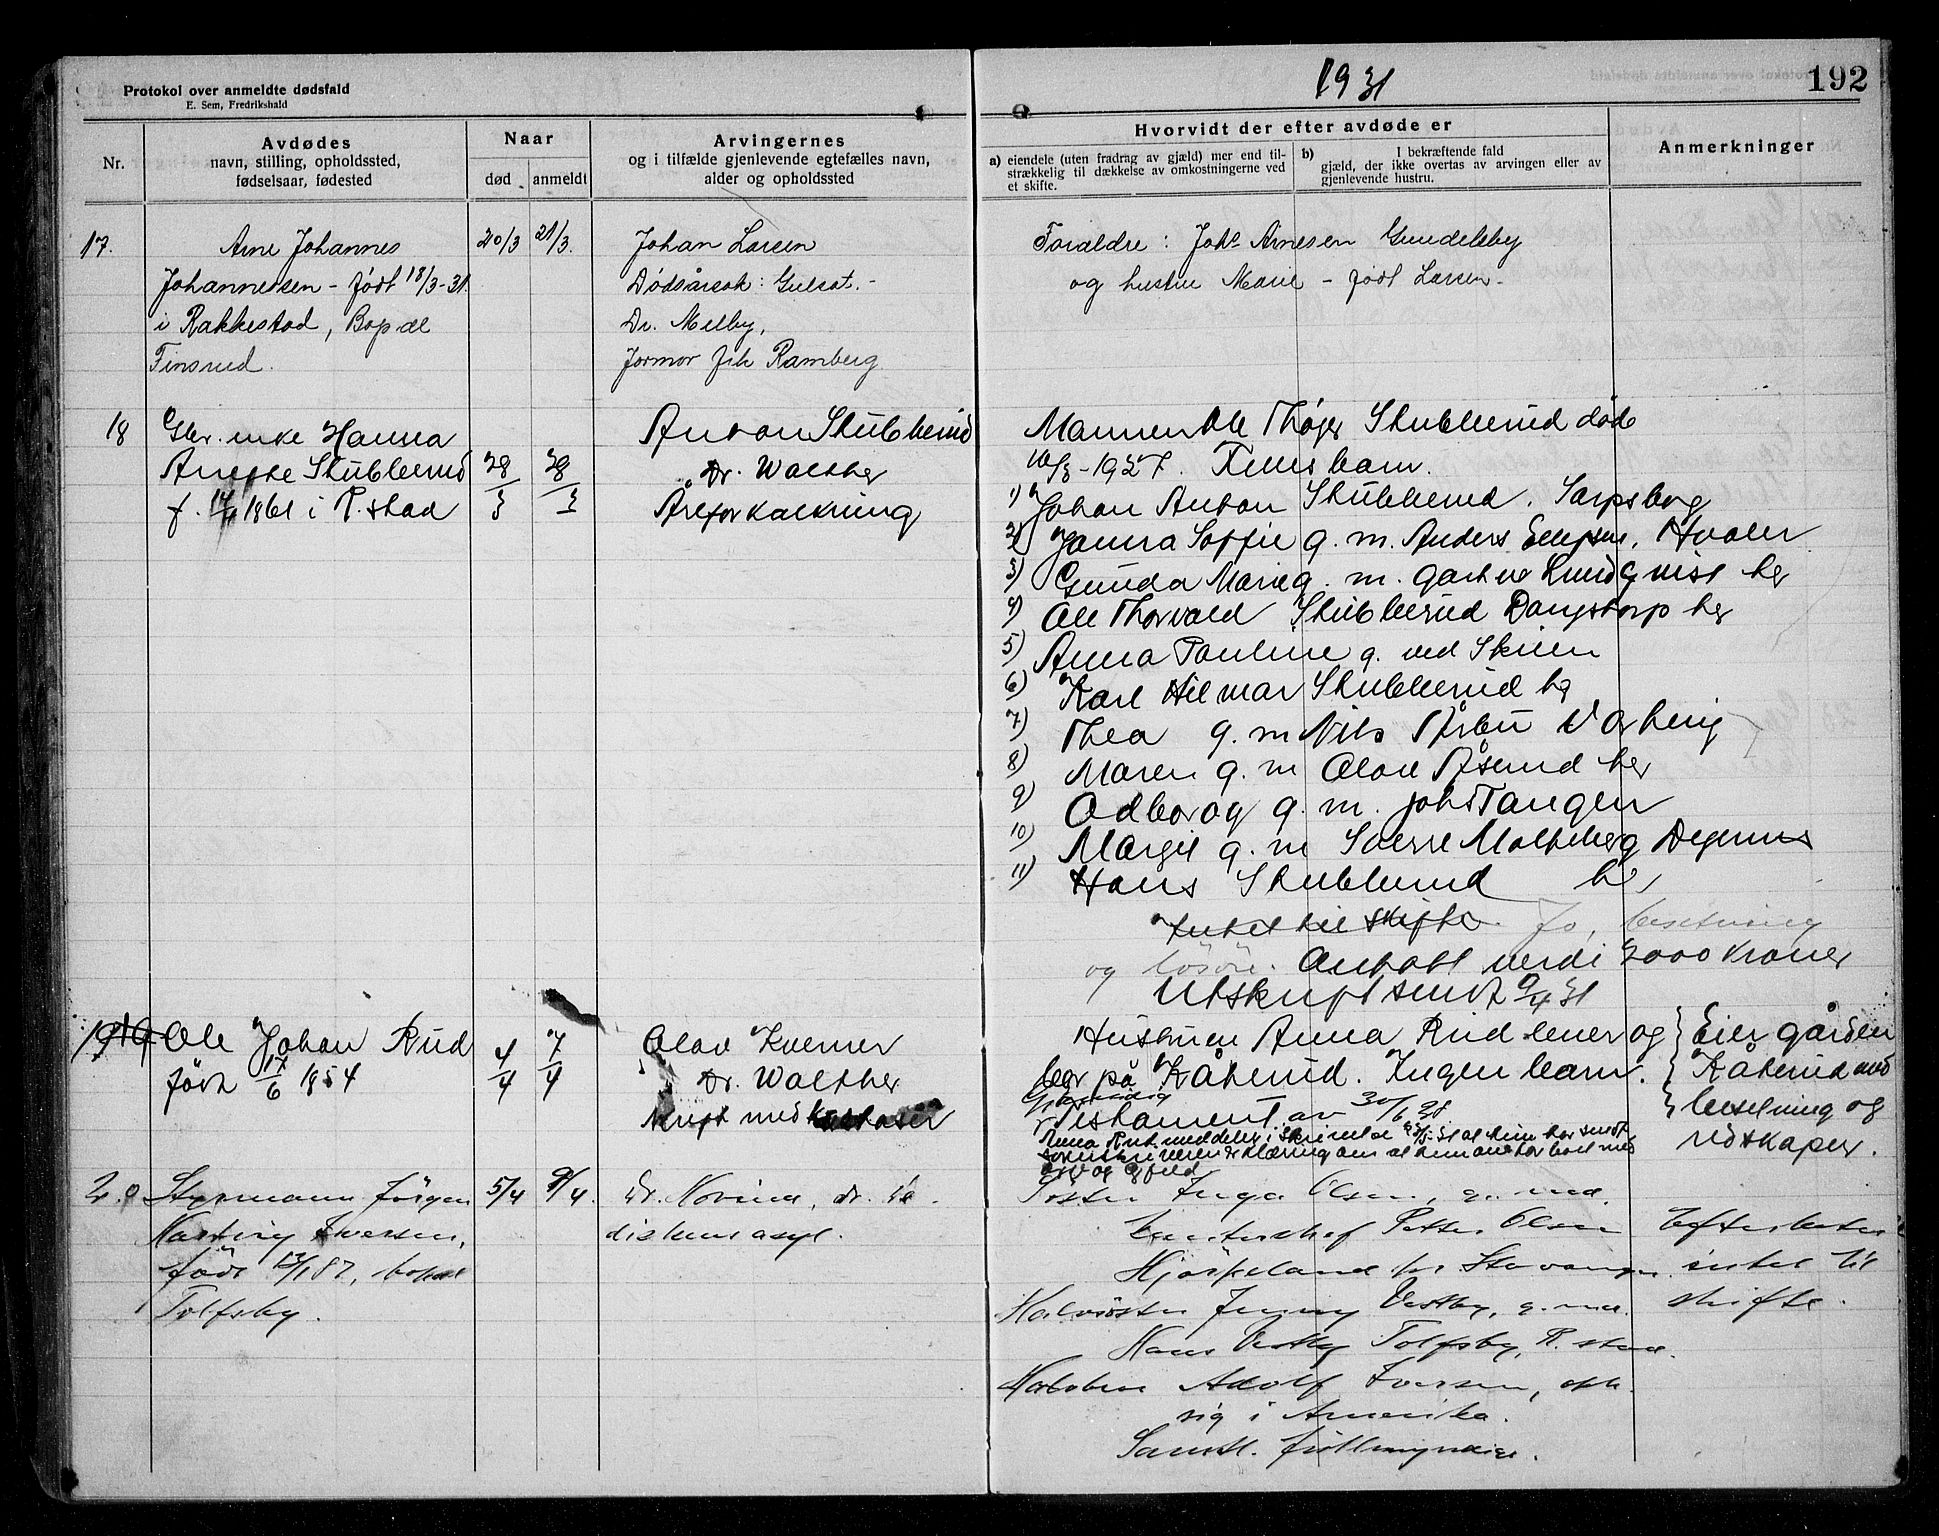 Protokol over anmeldte dødsfald
E. Sem, Fredrikshald
1931
192
Nr.
Avdødes
navn, stilling, opholdssted,
fødselsaar, fødested
Naar
død
anmeldt
Arvingernes
og i tilfælde gjenlevende egtefælles navn,
alder og opholdssted
Hvorvidt der efter avdøde er
a) eiendele (uten fradrag av gjæld) mer end til-
strækkelig til dækkelse av omkostningerne ved
et skifte.
b) I bekræftende fald
gjæld, der ikke overtas av arvingen eller av
gjenlevende hustru.
Anmerkninger
17.
Arne Johannes
Johannessen - født 18/3-31.
i Rakkestad, Bopæl
Finsrud.
20/3
21/3.
Johan Larsen
Dødsårsak: Gulsot. -
Dr. Melby,
Jormor frk Ramberg
Foraldre: Johs Arnesen Gundelsby
og hustru Marie - født Larsen -
18
Gbr. enke Hanna
Anette Skubberud
f. 1861 i R.stad
28/3
28/3
Anton Skubberud
Dr. Walther
Åreforkalkning
Mannen Ole Thøger Skubberud død
1927. Fems barn.
1) Johan Anton Skubberud. Sarpsborg
2) Janna Soffie g. m. Anders Ellefsen, Hvaler
3) Gunda Marie g. m. gartner Lindqvist her
4) Ole Thorvald Skubberud Dangstorp her
5) Anna Pauline g. ved Skien
6) Karl Hilmar Skubberud her
7) Thea g. m Nils Varteig
8) Maren g. m Olav Åserud her
9) Odborg g. m. Johs Tangen
10) Margit g. m Sverre Molteberg Degernes
11) Hans Skubberud her
Intet til skifte. Jo, besetning
og løsøre. Antatt verdi 2000 kroner
Utskrift sendt 9/4 31
19
Ole Johan Rud
født 17/6 1854
4/4
7/4
Olav Kverner
Dr. Walther
Hustruen Anna Rud lever og
bor på Kåterud. Ingen barn.
Gjensidig
Testament av 30/6 28
Anna Rud meddeler i skrivelse at hun har sendt
sorenskriveren erklæring om at hun overtar boet med
arv og gjeld
Eier gården
Kåterud med
besetning og
redskaper.
20
Styrmann Jörgen
Iversen,
født bopæl
Tolfsby.
5/4
9/4.
diskens asyl.
Søster Inga Olsen, g. med
Petter Olsen
Hjörpeland pr. Stavanger
Halvsöster Jenny Vestby, g. med
Hans Vestby Tolfsby, R.stad.
Halvbror Adolf Iversen, oph.
sig i Amerika.
Samtl. fullmyndige.
Efterlater
intet til
skifte.